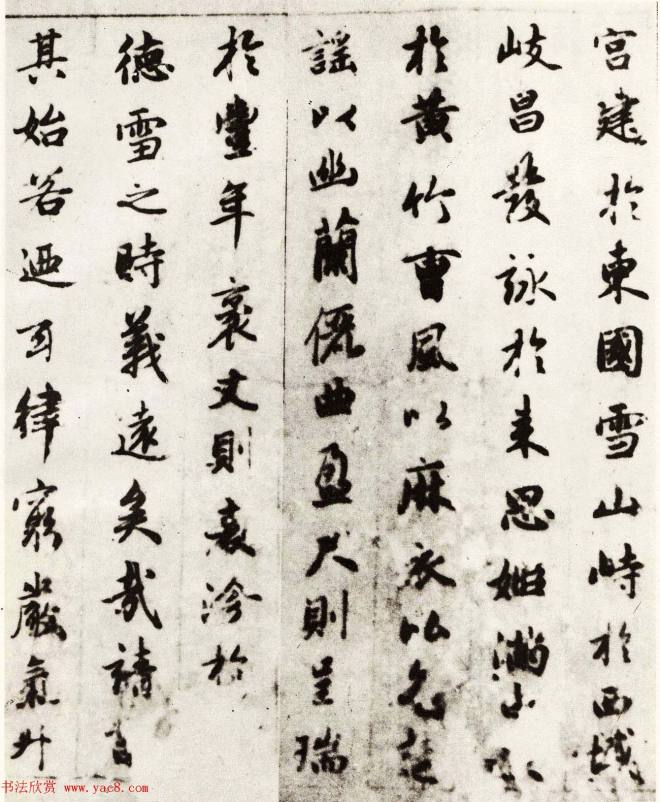 宮建於東國雪山峙於西域
岐昌發詠於來思姬滿申歌
於黃竹曹風以麻衣比色楚
謠以幽蘭儷曲盈尺則呈瑞
於豐年袤丈則表沴於
德雪之時義遠矣哉請言
其始若迺玄律窮嚴氣升
书法欣赏 www.yac8.com